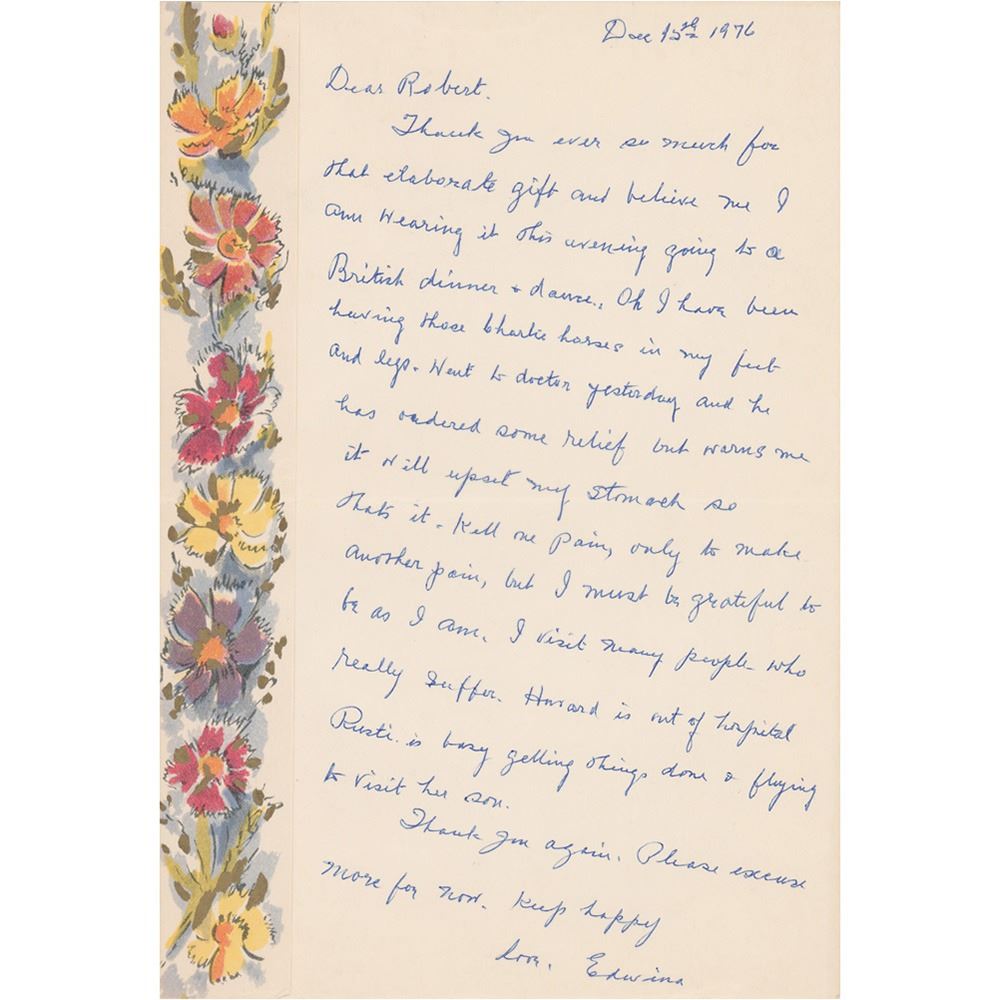 Dec 15th 1976
Dear Robert.
Thank you ever so much for
that elaborate gift and believe me I
am wearing it this evening going to a
British dinner + dance., Oh I have been
having those Charlie horses in my feet
and legs. Went to doctor yesterday and he
has ordered some relief but warns me
it will upset my stomach so
thats it - Kill one pain, only to make
another pain, but I must be grateful to
be as I am. I visit many people who
really suffer. Howard is out of hospital
Rusti. is busy getting things done & flying
to visit her son.
Thank you again. Please excuse
more for now. Keep happy
love. Edwina